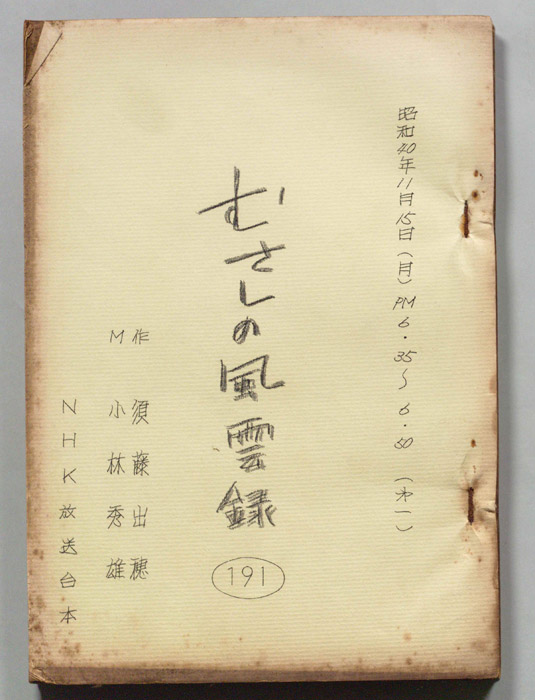 昭和40年11月15日（月）PM6・35〜6・50（オ一）
むさしの風雲録
191
作 須藤出穂
M 小林秀雄
NHK放送台本